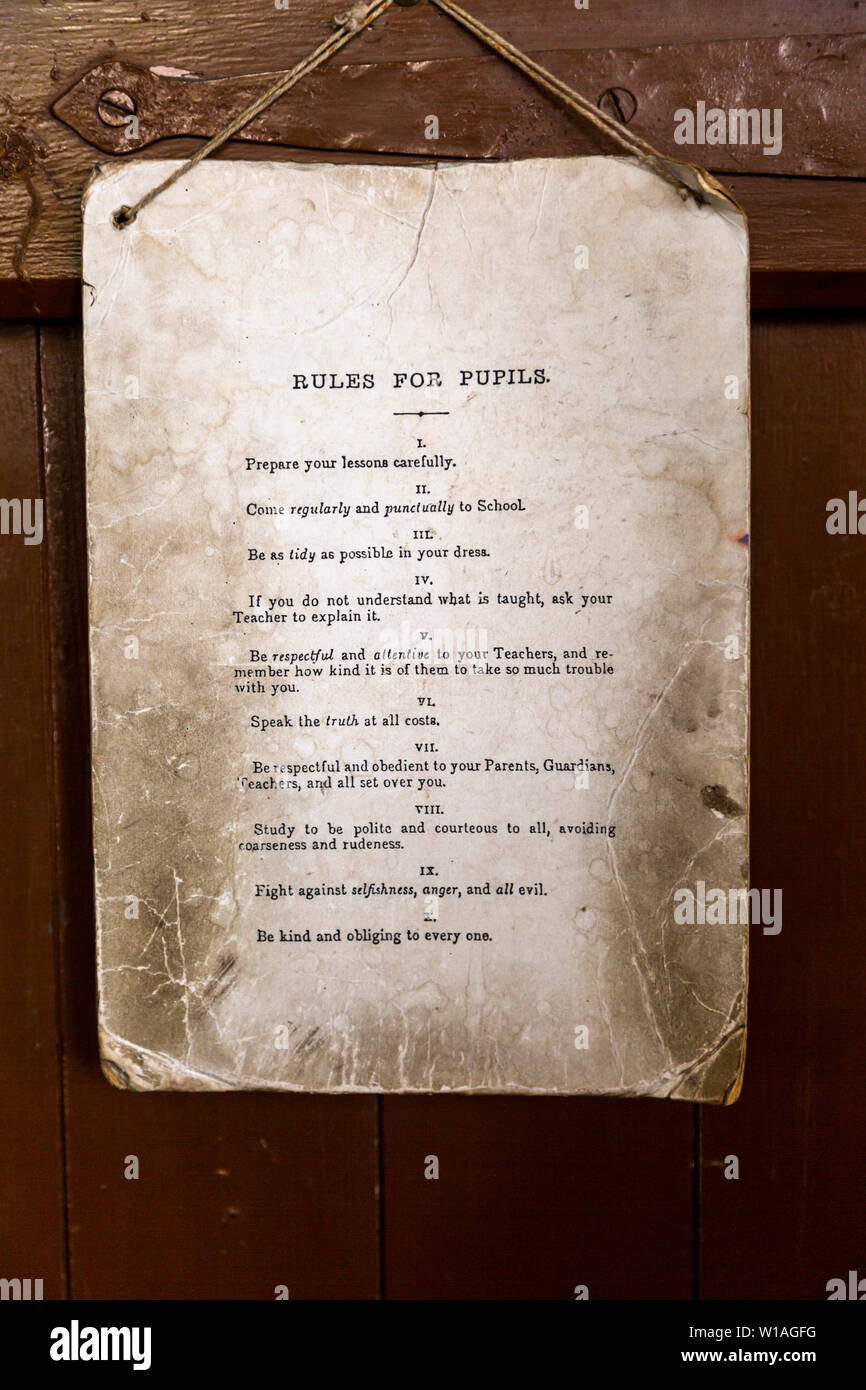 RULES FOR PUPILS.
I.
Prepare your lessons carefully.
II.
Come regularly and punctually to School.
III.
Be as tidy as possible in your dress.
IV.
If you do not understand what is taught, ask your
Teacher to explain it.
V.
Be respectful and attentive to your Teachers, and re-
member how kind it is of them to take so much trouble
with you.
VI.
Speak the truth at all costs.
VII.
Be respectful and obedient to your Parents, Guardians,
Teachers, and all set over you.
VIII.
Study to be polite and courteous to all, avoiding
coarseness and rudeness.
IX.
Fight against selfishness, anger, and all evil.
X.
Be kind and obliging to every one.
alamy
alamy
Image ID: W1AGFG
www.alamy.com